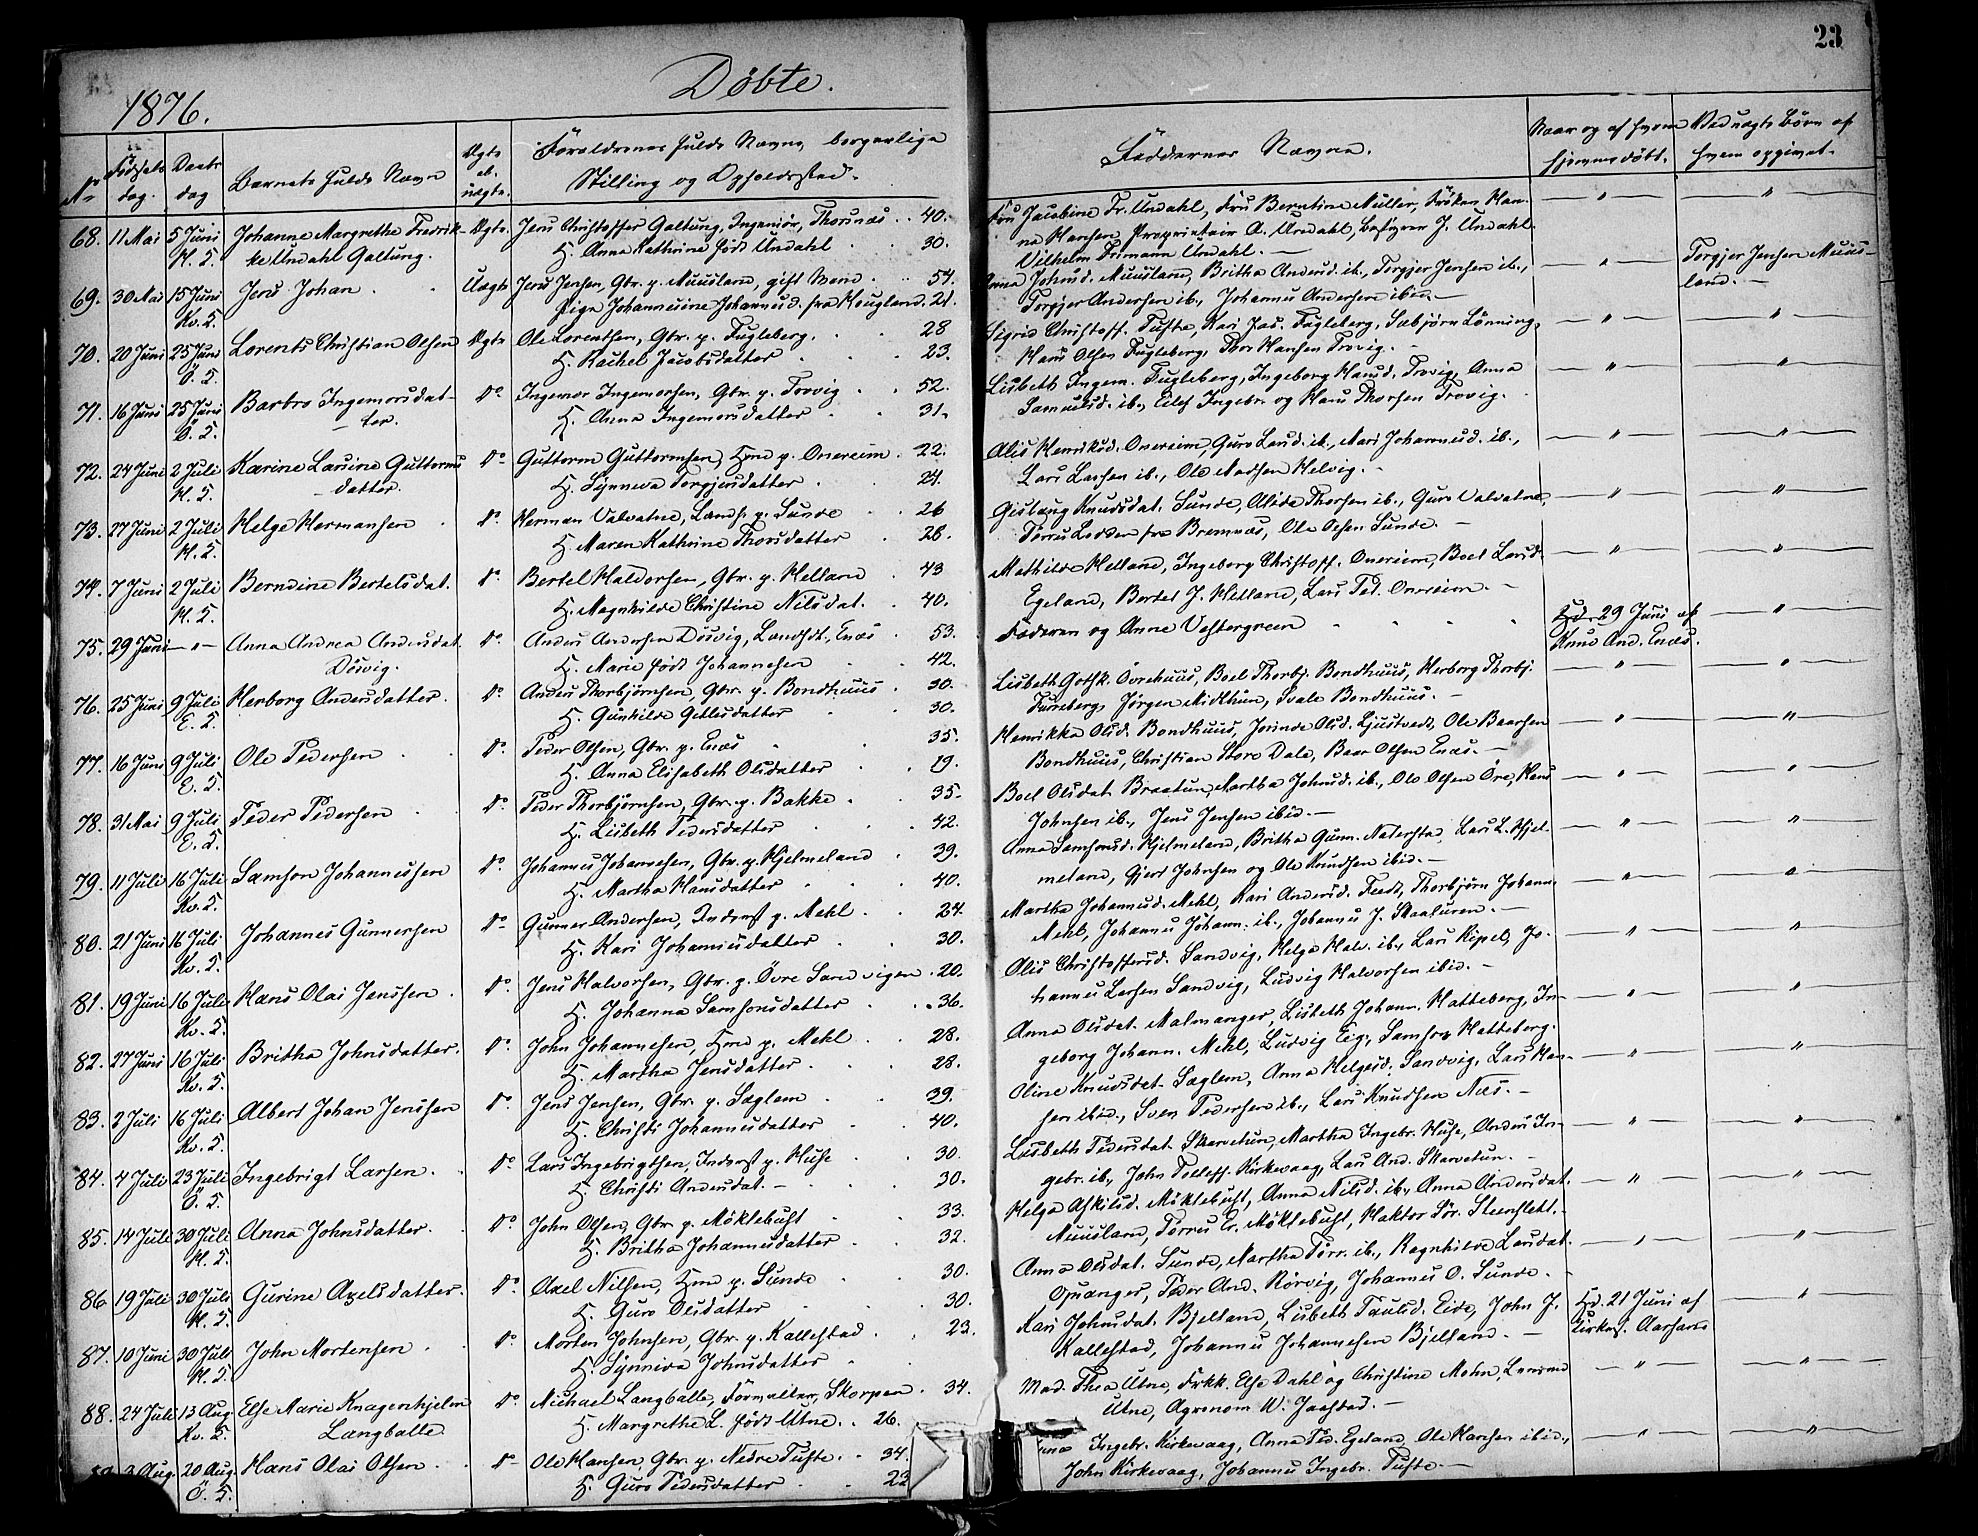 23
Döbte.
1876.
No
Födsels dag.
Daabs dag
Barnets fulde Navn
Ægte el. uægte.
Forældrenes fulde Navne, borgerlige
Stilling og Opholdssted.
Faddernes Navne.
Naar og af hvem
hjemmedöbt.
Ved uægte Börn af
hvem opgivet.
68. 11 Mai 5 Juni Johanne Margrethe Fredrik- Ægte. Jens Christoffer Galtung, Ingeniör, Thorsnæs . . 40.
H. 5. ke Undahl Galtung. H. Anna Kathrine född Undahl . . 30.
Fru Jacobine Fr. Undahl, Fru Berntine Müller, Fröken Han-
na Hansen, Proprietair A. Undahl, Befuger J. Undahl.
Vilhelm Frimann Undahl. —
69. 30 Mai 15 Juni Jens Johan . . Uægte Jens Jensen, Gbr. p. Muusland, gift Mand . . 54.
Kv. 5. Pige Johannesine Johannesd. fra Hougland. 21.
Anna Johnsd. Muusland, Britha Andersd. ib., Torgjer Jensen ib.,
Torgjer Andersen ib., Johannes Andersen ibid. —
Torgjer Jensen Muus-
land. —
70. 20 Juni 25 Juni Lorents Christian Olsen Ægte Ole Lorentsen, Gbr. p. Fugleberg. . 28
Ö. 5. H. Rachel Jacobsdatter . . 23.
Sigrid Christoff. Tufte, Kari Jac. Fugleberg, Sæbjörn Lönning,
Hans Olsen Fugleberg, Thor Hansen Trovig. —
71. 16 Juni 25 Juni Barbro Ingemorsdat- do Ingemor Ingemorsen, Gbr. p. Trovig . . 52.
Ö. 5. — ter. H. Anna Ingemorsdatter . . 31.
Lisbeth Ingem. Fugleberg, Ingeborg Hansd. Trovig, Anna
Samuelsd. ib., Eilef Ingebr. og Hans Thorsen Trovig.
72. 24 Juni 2 Juli Karine Larsine Guttorms do Guttorm Guttormsen, Hmd p. Onereim. 22.
H. 5. — datter. H. Synneva Torgjersdatter . . 24.
Alis Henriksd. Onereim, Guro Larsd. ib., Mari Johannesd. ib.,
Lars Larsen ib., Ole Madsen Helvig. —
73. 27 Juni 2 Juli Helge Hermansen . do Herman Valvatne, Landh. p. Sunde . . 26
H. 5. H. Maren Kathrine Thorsdatter . 28.
Gislaug Knudsdat. Sunde, Alida Thorsen ib., Guro Valvatne,
Torres Lodden fra Bremnæs, Ole Olsen Sunde. —
74. 7 Juni 2 Juli Berndine Bertelsdat. do Bertel Haldorsen, Gbr. p. Helland . 43
H. 5. H. Magnhilde Christine Nilsdat. . 40.
Mathilde Helland, Ingeborg Christoff. Onereim, Boel Larsd.
Egeland, Bertel J. Helland, Lars Ped. Onereim. —
75. 29 Juni — " — Anna Andrea Andersdat. do Anders Andersen Dösvig, Landhdl. Enæs . 53.
Dösvig. H. Marie född Johannesen . . 42.
Faderen og Anne Vestergreen
Hd. 29 Juni af
Knud And. Enæs.
76. 25 Juni 9 Juli Herborg Andersdatter. do Anders Thorbjörnsen, Gbr. p. Bondhuus . 30.
E. 5. H. Gunhilde Gitlesdatter . 30.
Lisbeth Gotsk. Övrehuus, Boel Thorbj. Bondhuus, Herborg Thorbj.
Fureberg, Jörgen Midthun, Svale Bondhuus. —
77. 16 Juni 9 Juli Ole Pedersen . . do Peder Olsen, Gbr. p. Enæs . 35.
E. 5. H. Anna Elisabeth Olsdatter . . 19.
Henrikka Olsd. Bondhuus, Jorinde Olsd. Ljustvedt, Ole Baarsen
Bondhuus, Christian Store Dale, Baar Olsen Enæs. —
78. 31 Mai 9 Juli Peder Pedersen . . do Peder Thorbjörnsen, Gbr. p. Bakke . . 35.
E. 5. H. Lisbeth Pedersdatter . . 42.
Boel Olsdat. Braatun, Martha Johnsd. ib., Ole Olsen Öre, Hans
Johnsen ib., Jens Jensen ibid. —
79. 11 Juli 16 Juli Samson Johannessen do Johannes Johannesen, Gbr. p. Hjelmeland . 39.
Kv. 5. H. Martha Hansdatter . . 40.
Anna Samsonsd. Hjelmeland, Britha Gunn. Naterstad, Lars L. Hjel-
meland, Gjert Johnsen og Ole Knudsen ibid. —
80. 21 Juni 16 Juli Johannes Gunnersen do Gunner Andersen, Inderst p. Mehl . . 24.
Kv. 5. H. Kari Johannesdatter . . 30.
Martha Johannesd. Mehl, Kari Andersd. Feedt, Thorbjörn Johann.
Mehl, Johannes Johann. ib., Johannes J. Skaaluren. —
81. 19 Juni 16 Juli Hans Olai Jenssen . do Jens Halvorsen, Gbr. p. Övre Sandvigen . 20.
Kv. 5. H. Johanna Samsonsdatter . . 36.
Alis Christoffersd. Sandvig, Helga Halv. ib., Lars Ripel, Jo-
hannes Larsen Sandvig, Ludvig Halvorsen ibid. —
82. 27 Juni 16 Juli Britha Johnsdatter. do John Johannesen, Hmd p. Mehl . . 28.
Kv. 5. H. Martha Jensdatter . . 28.
Anna Olsdat. Malmanger, Lisbeth Johann. Hatteberg, In-
geborg Johann. Mehl, Ludvig Eig., Samson Hatteberg.
83. 2 Juli 16 Juli Albert Johan Jenssen do Jens Jensen, Gbr. p. Sæglem . . 39.
Kv. 5. H. Christi Johannesdatter . 40.
Oline Knudsdat. Sæglem, Anna Helgesd. Sandvig, Lars Han-
sen ibid., Sven Pedersen ib., Lars Knudsen Næs. —
84. 4 Juli 23 Juli Ingebrigt Larsen. . do Lars Ingebrigtsen, Inderst p. Huse . 30.
Ö. 5. H. Christi Andersdat. — . . 30.
Lisbeth Pedersdat. Skarvetun, Martha Ingebr. Huse, Anders In-
gebr. ib., John Tollefs. Kirkevaag, Lars And. Skarvetun. —
85. 14 Juli 30 Juli Anna Johnsdatter. . do John Olsen, Gbr. p. Möklebust . 33.
H. 5. H. Britha Johannesdatter . . 32.
Helga Askilsd. Möklebust, Anna Nilsd. ib., Anna Andersdat.
Muusland, Torres Er. Möklebust, Haktor Sör. Steenslett. —
86. 19 Juli 30 Juli Gurine Axelsdatter. do Axel Nilsen, Hmd p. Sunde . 30.
H. 5. H. Guro Olsdatter . . 30.
Anna Olsdat. Sunde, Martha Torr. ib., Ragnhilde Larsdat.
Opsanger, Peder And. Rörvig, Johannes O. Sunde. —
87. 10 Juni 30 Juli John Mortensen . . do Morten Johnsen, Gbr. p. Kallestad . . 23.
H. 5. H. Synneva Johnsdatter .
Kari Johnsdat. Bjelland, Lisbeth Paulsd. Eide, John J.
Kallestad, Johannes Johannesen Bjelland. —
Hd. 21 Juni af
Kirkes. Aarsand
88. 24 Juli 13 Aug. Else Marie Knagenhjelm do Michael Langballe, Forvalter, Skorpen . 34.
Kv. 5. Langballe H. Margrethe L. född Utne. . 26.
Mad. Thea Utne, Frkk. Else Dahl og Christine Mohn, Lensmd
Utne, Agronom W. Jaastad. —
3 Aug. 20 Aug. Hans Olai Olsen . . do Ole Hansen, Gbr. p. Nedre Tufte. . 34.
Ö. 5. H. Guro Pedersdatter . . 23
Ingebr. Kirkevaag, Anna Ped. Egeland, Ole Hansen ibid.,
John Kirkevaag, Johannes Ingebr. Tufte. —